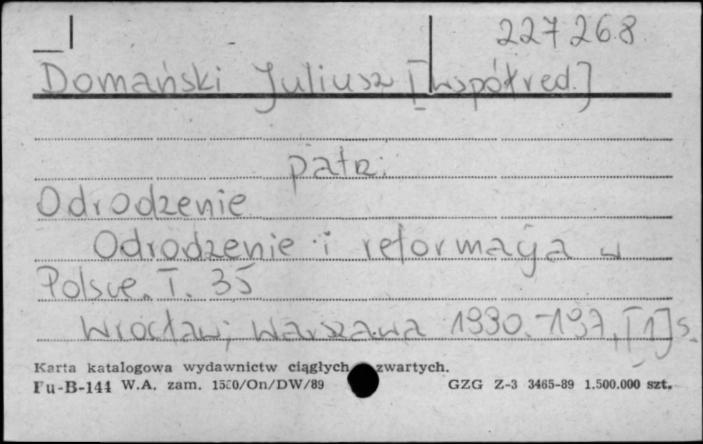 227268
Domański Juliusz [współred.]
patrz:
Odrodzenie
Odrodzenie i reformacja w
Polsce. T. 35
Wrocław; Warszawa 1990.-197, [1] s.
Karta katalogowa wydawnictw ciągłych zwartych.
Pu-B-144 W.A. zam. 1550/On/DW/89 GZG Z-3 3465-89 1.500.000 szt.